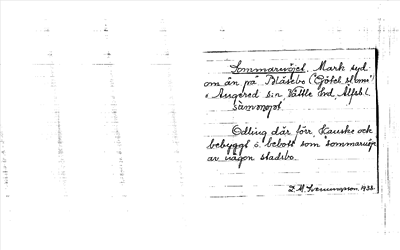 Sommarnöjet. Mark syd
om ån på Blåsebo ("Götebslomi")
i Angered s:n Vättle hd, Älfsb. l.
sämmopt
Odling där förr. Kanske ock
bebyggt o. bebott som sommarnöje
av någon stadsbo.
D. A. Svenungsson. 1932.